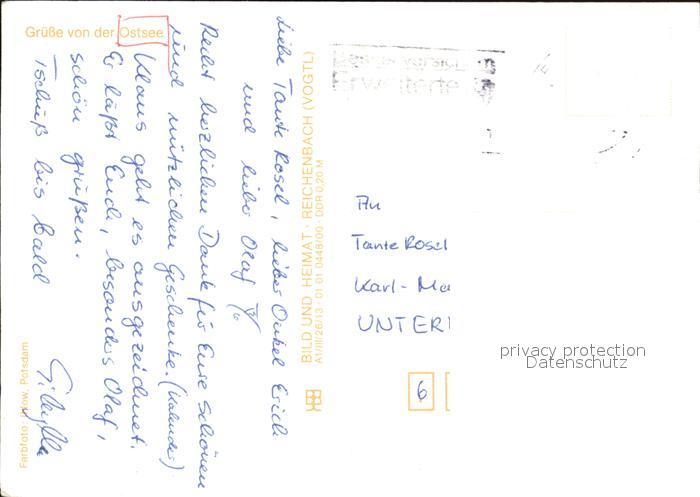 Grüße von der Ostsee
Liebe Tante Rosel, lieber Onkel Erich
und lieber Olaf
Recht herzlichen Dank für Eure schönen
und nützlichen Geschenke. (Kalender)
Klaus geht es ausgezeichnet.
Er läßt Euch, besonders Olaf,
schön grüßen.
Tschüß bis bald
Farbfoto: Potsdam
BILD UND HEIMAT · REICHENBACH (VOGTL)
A1/III/26/13 · 01 01 0448/00 · DDR 0,20 M
Erweiterte
An
Tante Rosel
Karl-Ma
UNTER
6
privacy protection
Datenschutz